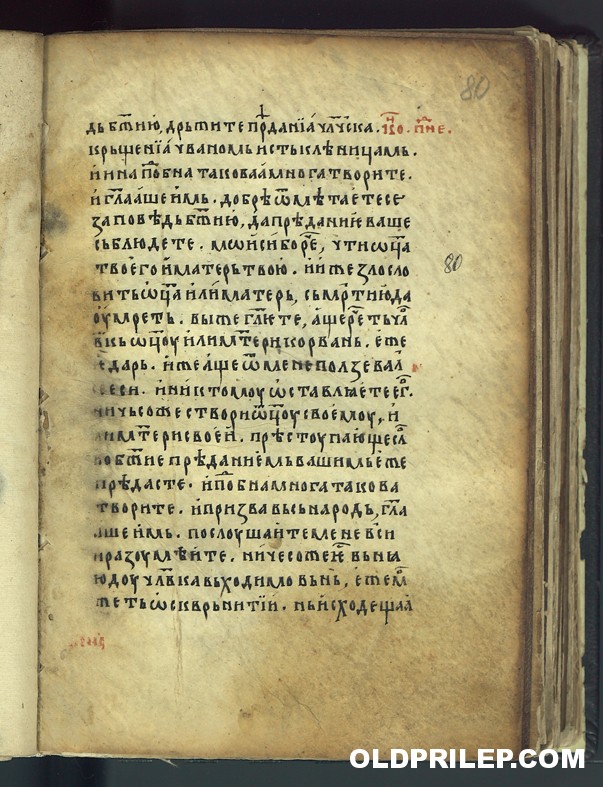 80
дь бж҃ию, дрьжите прѣданїа чл҃чска.
крьщенїа чваномь и стькленицамь.
и ина пѡбна такова амнога творите.
и гл҃ааше имь. добрѣ ѿмѣтаете се
заповѣдь бж҃ию, да прѣданиѥ ваше
сьблюдете. мѡиси бо рече, чти ѡц҃а
твоего и матерь твою. и иже зλосло
вить ѡц҃а или матерь, сьмр҃тию да
оумреть. вы же гл҃ѥте, аще реть чл҃
вкь ѡц҃оу или мт҃ери корвань. еже
дарь. иже аще ѿ мене ползевал
еси. и ни к томоу ѡставлꙗете ег
ничьсоже створи ѿц҃оу своемоу, и
мт҃ери своеи. прѣстоупающе сл
во бж҃ие прѣданиемь вашимь еже
прѣдасте. и пѡбна многа такова
творите. и призва вьсь народь, гл҃а
аше имь. послоушаите мене вси
и разоумѣите. ничесоже ѥ вьнꙗ
юдоу чл҃вка выходимо в нь, еже м
жеть ѡскврьнити и. нь исходещаꙗ
80
OLDPRILEP.COM